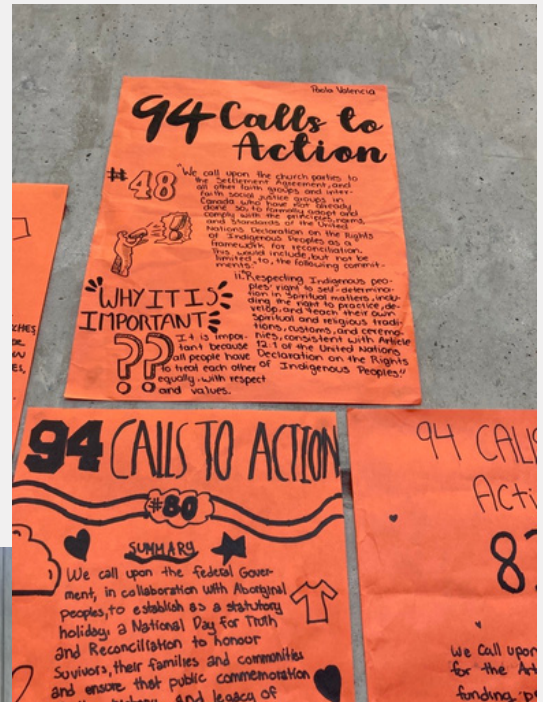 Paola Valencia
94 Calls to
Action
#48
"We call upon the church parties to
the Settlement Agreement, and
all other faith groups and inter-
faith social justice groups in
Canada who have not already
done so, to formally adopt and
comply with the principles, norms,
and standards of the United
Nations Declaration on the Rights
of Indigenous Peoples as a
framework for reconciliation.
This would include, but not be
limited to, the following commit-
ments:
"Respecting Indigenous peo-
ples' right to self-determina-
tion in spiritual matters, inclu-
ding the right to practice, de-
velop, and teach their own
spiritual and religious tradi-
tions, customs, and ceremo-
nies, consistent with Article
12:1 of the United Nations
Declaration on the Rights
of Indigenous Peoples."
"WHY IT IS
IMPORTANT
??
It is impor-
tant because
all people have
to treat each other
equally, with respect
and values.
94 CALLS TO ACTION
#80
SUMMARY
We call upon the federal Gover-
ment, in collaboration with Aboriginal
peoples, to establish as a statutory
holiday, a National Day for Truth
and Reconciliation to honour
Suvivors, their families and communities
and ensure that public commemoration
and legacy of
94 CALL
Acti
8
We Call upon
for the Art
funding